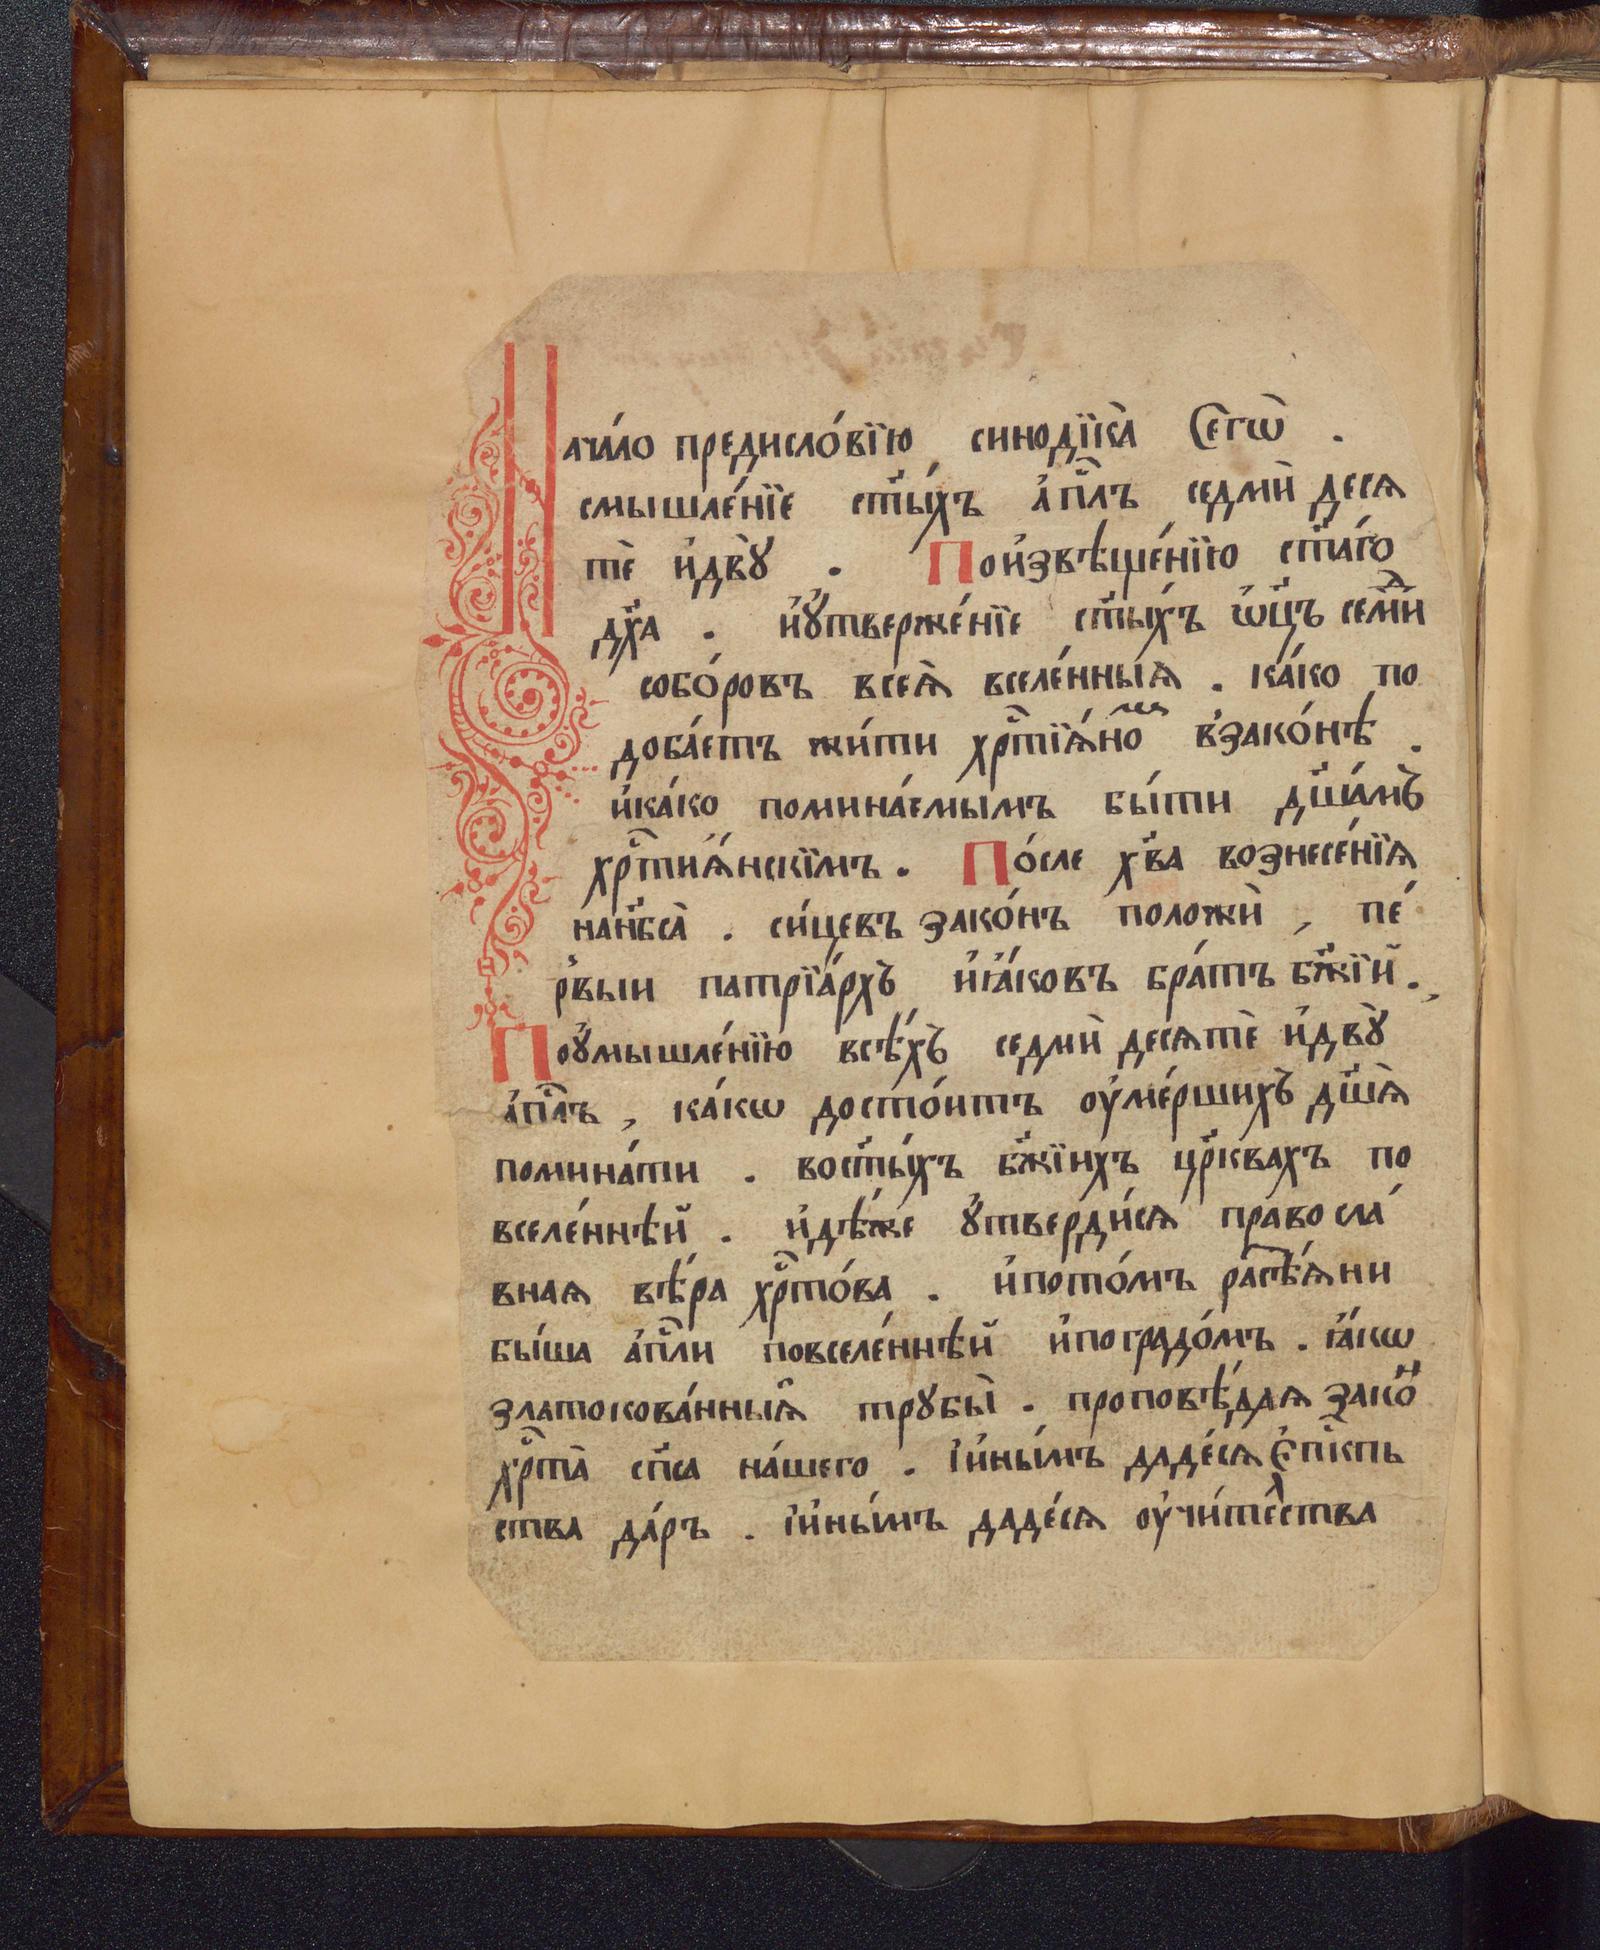 Нача́ло предисло́вїю синоді́ка̀ Сегѡ̀ .
смышле́нїе ст҃ы́хъ а҆пⷭ҇лъ седмѝ деся
тѐ и҆два̀ꙋ . Поизвѣще́нїю ст҃а́го
дх҃а . и҆ꙋ҆тверже́нїе ст҃ы́хъ ѻ҆ц҃ъ семѝ
собо́ровъ всея̀ вселе́нныя . ка́ко по
доба́етъ жи́ти хрⷭ҇тїѧ́номъ в̾зако́нѣ .
и҆ка́ко помина́емымъ бы́ти дш҃а́мъ
хрⷭ҇тиѧ́нскїмъ . По́сле хв҃а вознесе́нїѧ
нанб҃са̀ . си́цевъ зако́нъ положѝ , пе́
рвыи патрїа́рхъ и҆ꙗ҆́ковъ бра́тъ бж҃їй .
Поꙋ҆мышле́нїю всѣ́хъ седмѝ десѧтѐ и҆двꙋ̀
а҆пⷭ҇лъ , ка́кѡ досто́итъ оу҆ме́ршихъ дш҃ѧ̀
помина́ти . вост҃ы́хъ бж҃їихъ цр҃квахъ по
вселе́ннѣй . и҆дѣ́же ꙋ҆тверди́сѧ правосла́
внаѧ вѣ́ра хрⷭ҇то́ва . и҆пото́мъ расѣ́ѧни
бы́ша а҆пⷭ҇ли повселе́ннѣй и҆поградо́мъ . ꙗ҆́кѡ
златокова́нныѧ трубы̀ . проповѣ́даѧ зако́н
хрⷭ҇та̀ сп҃са на́шего . і҆и҆ны́мъ даде́сѧ є҆пⷭ҇кпь
ства да́ръ . і҆и҆ны́мъ даде́сѧ оу҆чи́телства